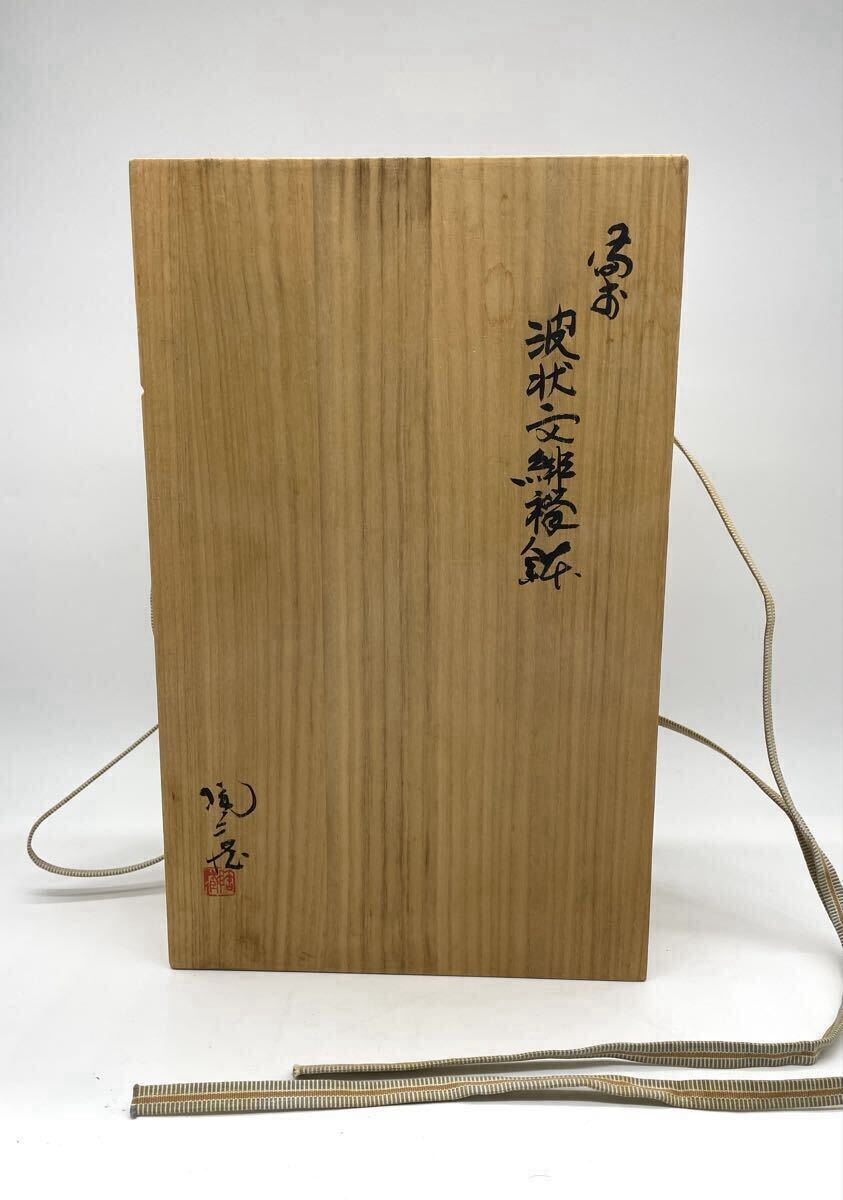 備前
波状文緋襷鉢
陶三造